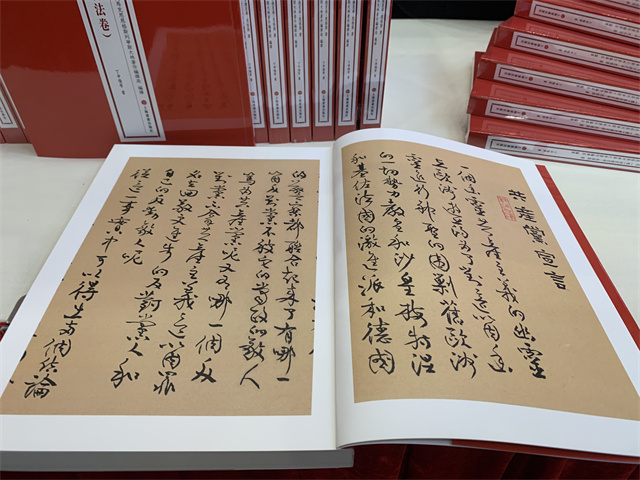 法卷）
共產黨宣言
一個幽靈共產主義的幽靈
在歐洲遊蕩為了對這個幽
靈進行神聖的圍剿舊歐洲
的一切勢力教皇和沙皇梅特涅
和基佐法國的激進派和德國
的警察都聯合起來了有哪一
個反對黨不被它的當政的敵人
罵為共產黨呢又有哪一個反
對黨不拿共產主義這個罪
名去回敬更進步的反對黨人和
自己的反動敵人呢
從這一事實中可以得出兩個結論